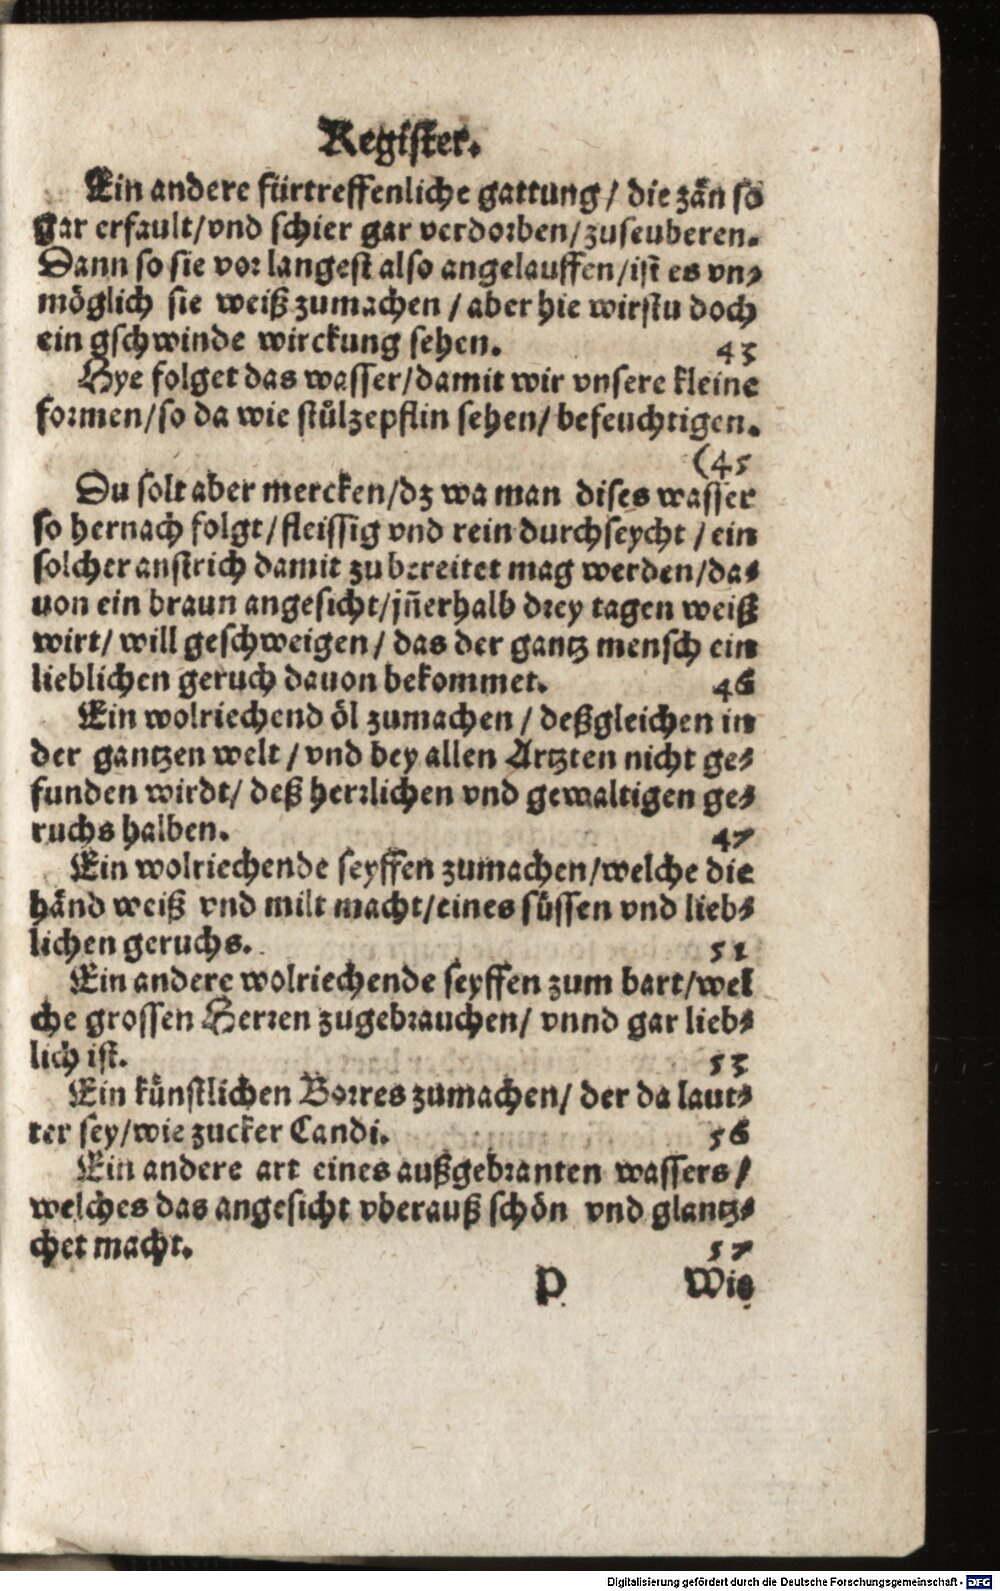 Register.
Ein andere fürtreffenliche gattung / die zän so
gar erfault/vnd schier gar verdorben/zuseuberen.
Dann so sie vor langest also angelauffen/ist es vn⸗
möglich sie weiß zumachen / aber hie wirstu doch
ein gschwinde wirckung sehen. 43
Hye folget das wasser/damit wir vnsere kleine
formen/so da wie stůlzepflin sehen/ befeuchtigen.
(45
Du solt aber mercken/dz wa man dises wasser
so hernach folgt/ fleissig vnd rein durchseycht / ein
solcher anstrich damit zu bereitet mag werden/da⸗
uon ein braun angesicht/jn̄erhalb drey tagen weiß
wirt/ will geschweigen / das der gantz mensch ein
lieblichen geruch dauon bekommet. 46
Ein wolriechend öl zumachen / deßgleichen in
der gantzen welt / vnd bey allen Artzten nicht ge⸗
funden wirdt/ deß herrlichen vnd gewaltigen ge⸗
ruchs halben. 47
Ein wolriechende seyffen zumachen/welche die
händ weiß vnd milt macht/eines süssen vnd lieb⸗
lichen geruchs. 51
Ein andere wolriechende seyffen zum bart/wel
che grossen Herren zugebrauchen/ vnnd gar lieb⸗
lich ist. 53
Ein künstlichen Borres zumachen/ der da laut⸗
ter sey/wie zucker Candi. 56
Ein andere art eines außgebranten wassers/
welches das angesicht vberauß schön vnd glantz⸗
chet macht. 57
P Wie
Digitalisierung gefördert durch die Deutsche Forschungsgemeinschaft - DFG